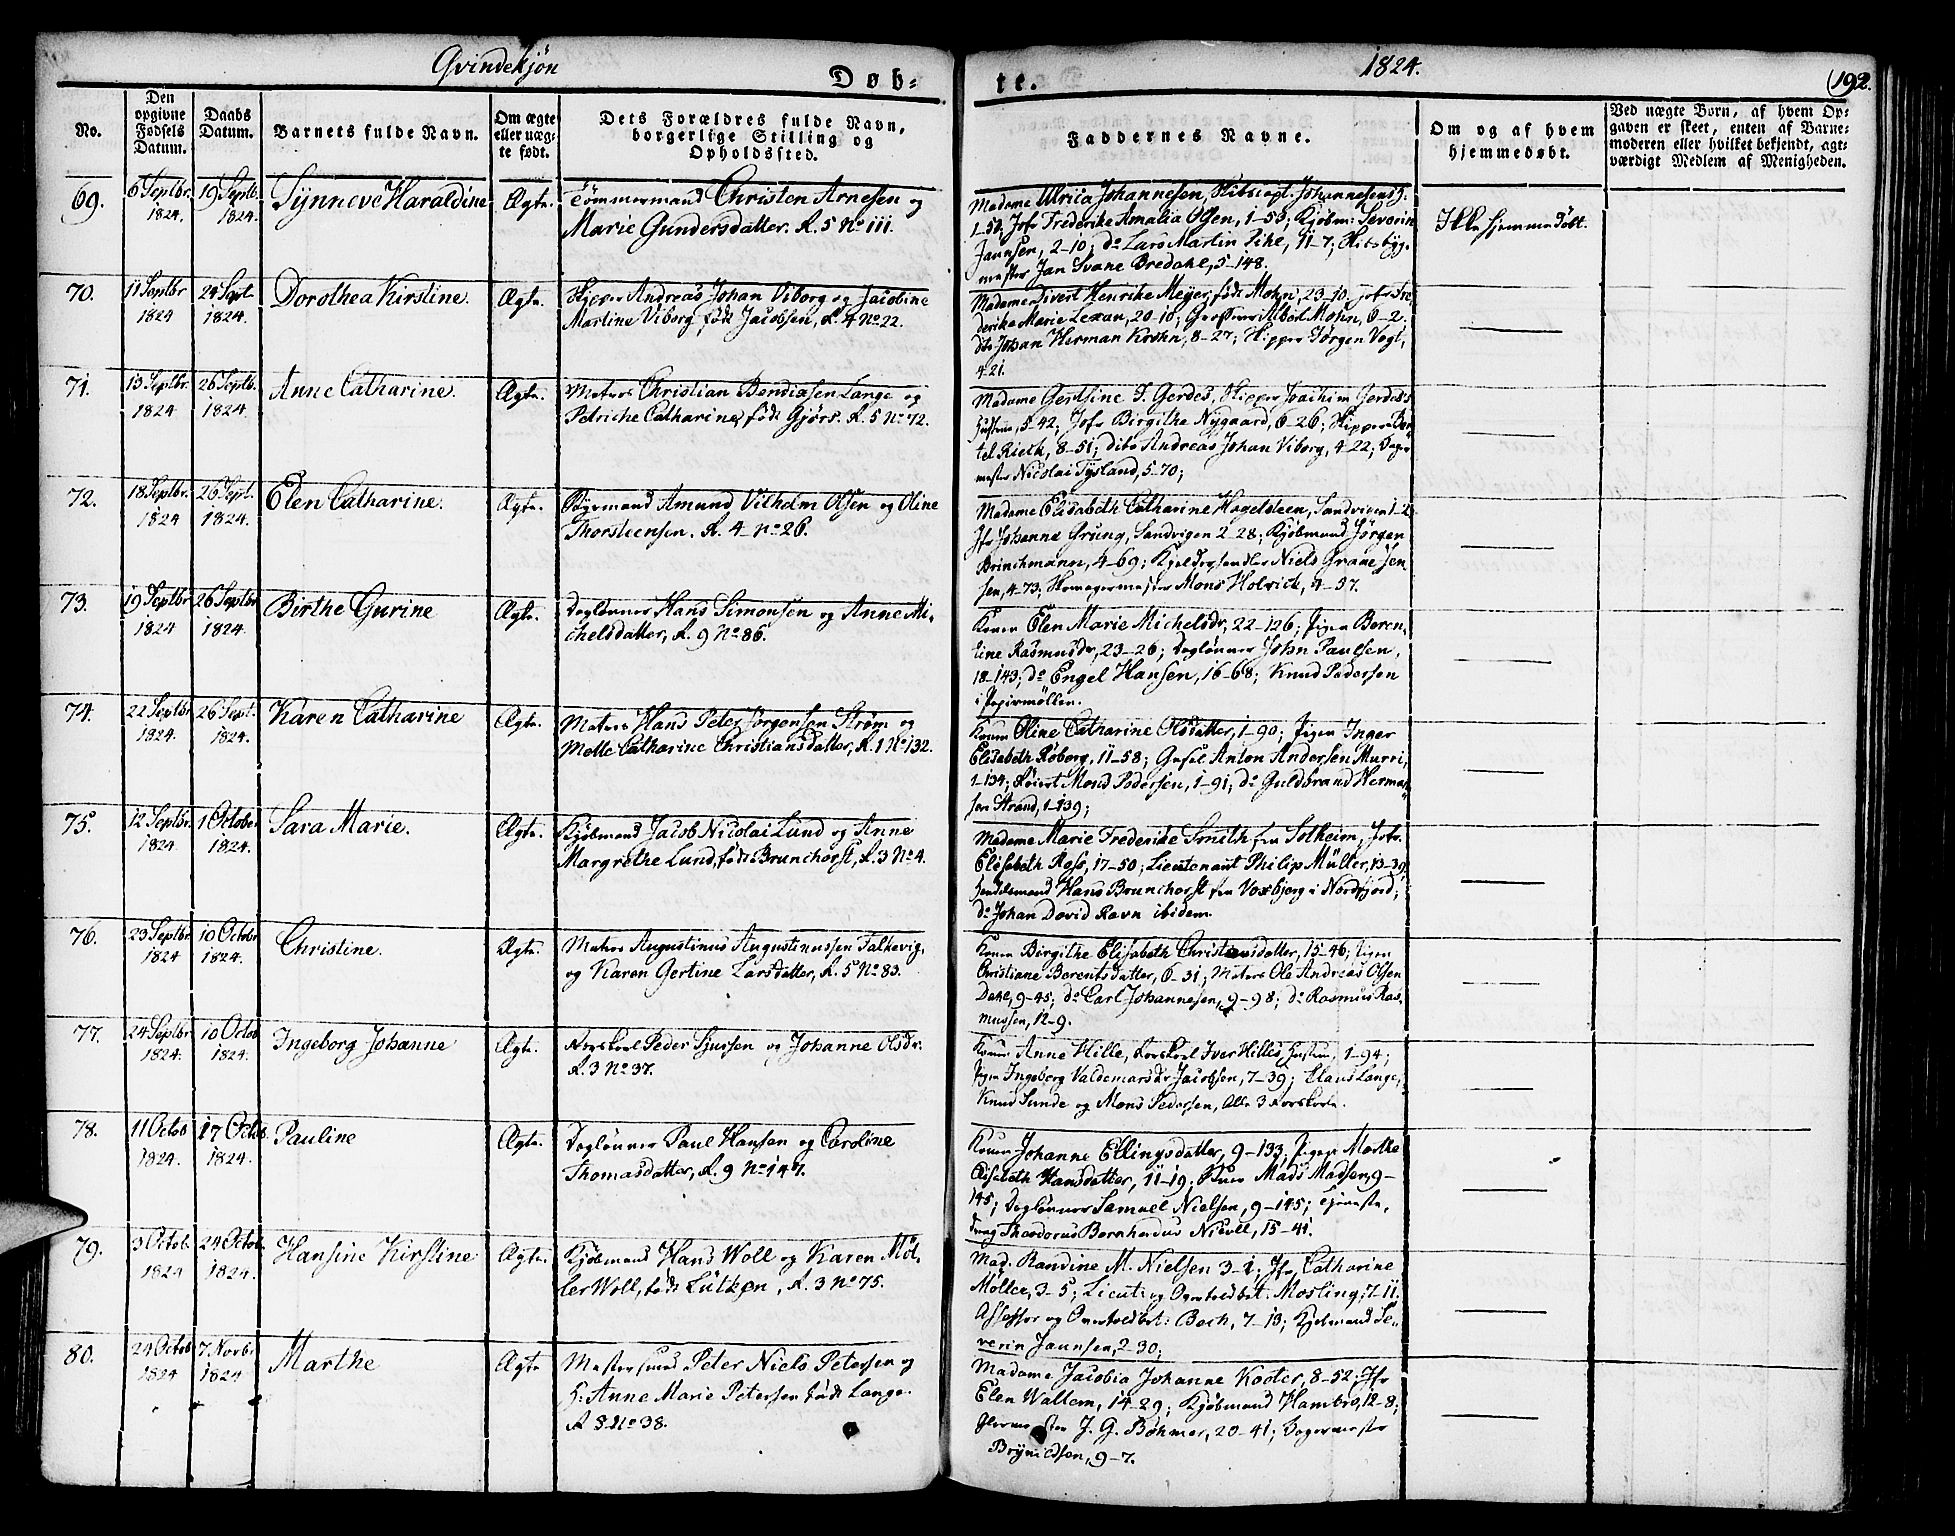 Qvindekjøn
Døb-
te.
1824.
192.
No.
Den opgivne Fødsels Datum.
Daabs Datum.
Barnets fulde Navn.
Om ægte eller uægte født.
Dets Forældres fulde Navn, borgerlige Stilling og Opholdssted.
Faddernes Navne.
Om og af hvem hjemmedøbt.
Ved uægte Børn, af hvem Opgaven er skeet, enten af Barnemoderen eller hvilket bekjendt, agtværdigt Medlem af Menigheden.
69.
6 Septbr. 1824.
19 Septb. 1824.
Synneve Haraldine
Ægte.
Tømmermand Christen Arnesen og
Marie Gundersdatter. R. 5 No 111.
Madame Ulrica Johannesen, Skibscapt. Johannesens H.
1-50; Jfr Frederike Amalia Olsen, 1-50; Kjøbm: Severin
Jaunsen, 2-10; do Lars Martin Pihe, 11-7; Skibsbyg-
mester Jan Svane Bredahl, 5-148.
Ikke hjemmedøbt.
70.
11 Septbr 1824
24 Sept. 1824.
Dorothea Kirstine.
Ægte.
Skipper Andreas Johan Viborg og Jacobine
Martine Viborg født Jacobsen, R. 4 No 22.
Madame Divert Henrike Meyer, født Mohn, 23-10; Jfr Fre-
derike Marie Lexau, 20-18; Albert Mohn, 6-2.
dito Johan Herman Krohn, 8-27; Skipper Jørgen Vogt,
4-21.
71.
13 Septbr. 1824
26 Septb. 1824.
Anne Catharine.
Ægte.
Matros Christian Bendixsen Lange og
Petriche Catharine, født Gjørs. R. 5 No 72.
Madame Gertsine I. Gerdes, Skipper Joachim Gerdes's
Hustrue, 5-42; Jfr Birgithe Nygaard, 6-26; Skipper Ber-
tel Rieck, 8-51; dito Andreas Johan Viborg, 4-22; Tager-
mester Nicolai Tysland, 5-70;
72.
18 Septbr. 1824
26 Sept. 1824.
Elen Catharine.
Ægte.
Amund Vilhelm Olsen og Oline
Thorsteensen. R. 4 No 26.
Madame Elisabeth Catharine Hagelsteen, Sandvigen 1-2
Jfr Johanne Grung, Sandvigen 2-28; Kjøbmand Jørgen
Brinchmann, 4-69; Niels Graae Jen-
sen, 4-73; Mons Holvick, 4-57.
73.
19 Septbr 1824
26 Septbr 1824.
Birthe Gurine
Ægte.
Dagløner Hans Simonsen og Anne Mi-
chelsdatter, R. 9 No 86.
Konen Elen Marie Michelsdr, 22-126; Pigen Beren-
tine Rasmusdr, 23-26; Dagløner John Paulsen,
18-143; do Engel Hansen, 16-68; Knud Pedersen
i Papirmøllen.
74.
22 Septbr 1824.
26 Sept. 1824.
Karen Catharine
Ægte.
Matros Hans Peter Jørgensen Strøm og
Mette Catharine Christiansdatter, R. 1 No 132.
Konen Oline Catharine Olsdatter, 1-90; Pigen Inger
Elisabeth Roberg, 11-58; Anton Andersen Murri,
1-134; Mons Pedersen, 1-91; do Guldbrand Herman-
sen Strand, 1-139;
75.
12 Septbr. 1824.
1 October 1824.
Sara Marie.
Ægte.
Kjøbmand Jacob Nicolai Lund og Anne
Margrethe Lund, født Brunchorst, R. 3 No 4.
Madame Marie Frederike Smith fra Solheim; Jfr.
Elisabeth Rosø, 17-50; Lieutenant Philip Müller, 13-39;
Handelsmand Hans Brunchorst fra Voxbjerg i Nordfjord;
do Johan David Ravn ibidem.
76.
23 Septbr 1824
10 Octobr 1824.
Christine.
Ægte.
Matros Augustinus Augustinussen Falkevig,
og Karen Gertine Larsdatter, R. 5 No 83.
Konen Birgithe Elisabeth Christensdatter, 15-46; Pigen
Christiane Berentsdatter, 6-31; Matros Ole Andreas Olsen
Dahl, 9-45; do Carl Johannesen, 9-98; do Rasmus Ras-
mussen, 12-9.
77.
24 Septbr 1824.
10 Octob 1824.
Ingeborg Johanne
Ægte.
Korskarl Peder Sjursen og Johanne Olsdr.
R. 3 No 37.
Konen Anne Hille, Korskarl Iver Hilles Hustrue, 1-94;
Pigen Ingeborg Valdemarsdr Jacobsen, 7-39; Claus Lange,
Knud Sunde og Mons Pedersen, Alle 3 Korskarle.
78.
11 Octob 1824.
17 Octob. 1824.
Pauline
Ægte.
Dagløner Paul Hansen og Caroline
Thomasdatter, R. 9 No 147.
Konen Johanne Ellingsdatter, 9-133; Pigen Marthe
Elisabeth Hansdatter, 11-19; Mads Madsen, 9-
145; Dagløner Samuel Nielsen, 9-145; Tjeneste-
dreng Theodorus Bernhardus Nicoll, 15-41.
79.
3 Octob. 1824
24 Octob. 1824.
Hansine Kirstine
Ægte.
Kjøbmand Hans Woll og Karen Møl-
ler Woll, født Lütken, R. 3 No 75.
Mad. Randine M. Nielsen 3-1; Jfr. Catharine
Möller, 3-5; Lieut: og Overtoldbet. Mosling, 7-11.
Assessor og Overtoldbet: Bech, 7-13; Kjøbmand Se-
verin Jaunsen, 2-30;
80.
24 Octob 1824
7 Novbr. 1824
Marthe
Ægte
Mestersmed Peter Niels Petersen og
H. Anne Marie Petersen født Lange.
R 8. No 38.
Madame Jacobia Johanne Koster, 8-52; Jfr
Elen Wallem, 14-29; Kjøbmand Hambro, 12-8;
Glarmester J. G. Böhmer, 20-41; Bagermester
Brynildsen, 9-7.